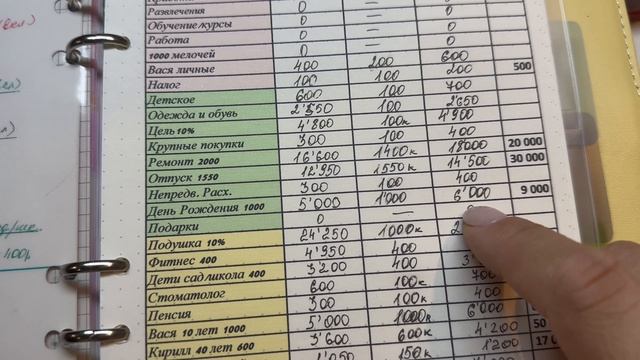 Развлечения 0 — 0
Обучение/курсы 0 — 0
Работа 0 — 0
1000 мелочей 0 — 0
Вася личные 400 200 600 500
Налог 100 100 200
Детское 600 100 700
Одежда и обувь 2'550 100 2'650
Цель 10% 4'800 100к 4'900
Крупные покупки 300 100 400
Ремонт 2000 16'600 1400к 18000 20 000
Отпуск 1550 12'950 1550к 14'500 30 000
Непредв. Расх. 300 100 400
День Рождения 1000 5'000 1'000 6'000 9 000
Подарки 0 —
Подушка 10% 24'250 1000к
Фитнес 400 4'950 400
Дети сад/школа 400 3'200 400
Стоматолог 600 100к 700
Пенсия 300 100к 400
Вася 10 лет 1000 5'000 1000к 6'000
Кирилл 40 лет 600 3'600 600к 4'200 50
150к 1'200 17
400к